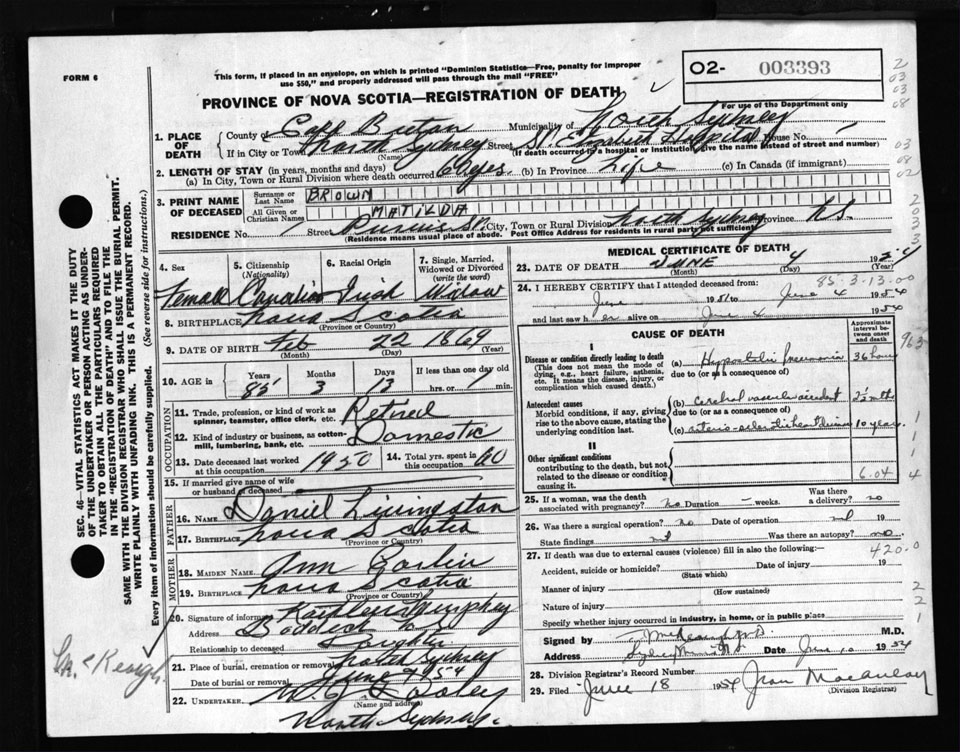 FORM 6
This form, if placed in an envelope, on which is printed "Dominion Statistics—Free, penalty for improper
use $50," and properly addressed will pass through the mail "FREE"
O2- 003393
PROVINCE OF NOVA SCOTIA—REGISTRATION OF DEATH
For use of the Department only
1. PLACE OF DEATH
County of Cape Breton Municipality of North Sydney
If in City or Town North Sydney Street St. Elizabeth Hospital House No.
(Name) (If death occurred in a hospital or institution, give the name instead of street and number)
2. LENGTH OF STAY (in years, months and days)
(a) In City, Town or Rural Division where death occurred (b) In Province Life (c) In Canada (if immigrant)
3. PRINT NAME OF DECEASED
Surname or Last Name BROWN
All Given or Christian Names MATILDA
RESIDENCE No. Street City, Town or Rural Division North Sydney Province N.S.
(Residence means usual place of abode. Post Office Address for residents in rural parts not sufficient)
4. Sex Female
5. Citizenship (Nationality) Canadian
6. Racial Origin Irish
7. Single, Married, Widowed or Divorced (write the word) Widow
8. BIRTHPLACE Nova Scotia
(Province or Country)
9. DATE OF BIRTH Feb 22 1869
(Month) (Day) (Year)
10. AGE in Years 85 Months 3 Days 13 If less than one day old hrs. or min.
OCCUPATION
11. Trade, profession, or kind of work as spinner, teamster, office clerk, etc. Retired
12. Kind of industry or business, as cotton-mill, lumbering, bank, etc. Domestic
13. Date deceased last worked at this occupation 1950
14. Total yrs. spent in this occupation 60
15. If married give name of wife or husband of deceased
FATHER
16. NAME Daniel Livingston
17. BIRTHPLACE Nova Scotia
(Province or Country)
MOTHER
18. MAIDEN NAME Ann
19. BIRTHPLACE Nova Scotia
(Province or Country)
20. Signature of informant Kathleen
Address Baddeck
Relationship to deceased Daughter
21. Place of burial, cremation or removal North Sydney
Date of burial or removal June 7 1954
22. UNDERTAKER
(Name and address)
North Sydney.
MEDICAL CERTIFICATE OF DEATH
23. DATE OF DEATH JUNE 4 1954
(Month) (Day) (Year)
85-3-13-00
24. I HEREBY CERTIFY that I attended deceased from:
June 1951 to June 4 1954
and last saw her alive on June 4 1954
CAUSE OF DEATH
Approximate interval between onset and death
I
Disease or condition directly leading to death
(This does not mean the mode of dying, e.g., heart failure, asthenia, etc. It means the disease, injury, or complication which caused death.)
(a) Hypostatic pneumonia 36 hours
due to (or as a consequence of)
Antecedent causes
Morbid conditions, if any, giving rise to the above cause, stating the underlying condition last.
(b) cerebral vascular accident 2½ mths
due to (or as a consequence of)
(c) arterio-sclerotic heart disease 10 years.
II
Other significant conditions
contributing to the death, but not related to the disease or condition causing it.
6.04 4
25. If a woman, was the death associated with pregnancy? no Duration – weeks. Was there a delivery? no
26. Was there a surgical operation? no Date of operation nil 19
State findings nil Was there an autopsy? no.
27. If death was due to external causes (violence) fill in also the following:— 420.0
Accident, suicide or homicide? Date of injury 19
(State which)
Manner of injury
(How sustained)
Nature of injury
Specify whether injury occurred in industry, in home, or in public place
Signed by M.D.
Address Date June 1954
28. Division Registrar's Record Number
29. Filed June 18 1954 Jean Macaulay
(Division Registrar)
SEC. 46—VITAL STATISTICS ACT MAKES IT THE DUTY
OF THE UNDERTAKER OR PERSON ACTING AS UNDER-
TAKER TO OBTAIN ALL THE PARTICULARS REQUIRED
IN THE "REGISTRATION OF DEATH" AND TO FILE THE
SAME WITH THE DIVISION REGISTRAR WHO SHALL ISSUE THE BURIAL PERMIT.
WRITE PLAINLY WITH UNFADING INK. THIS IS A PERMANENT RECORD.
Every item of information should be carefully supplied. (See reverse side for instructions.)